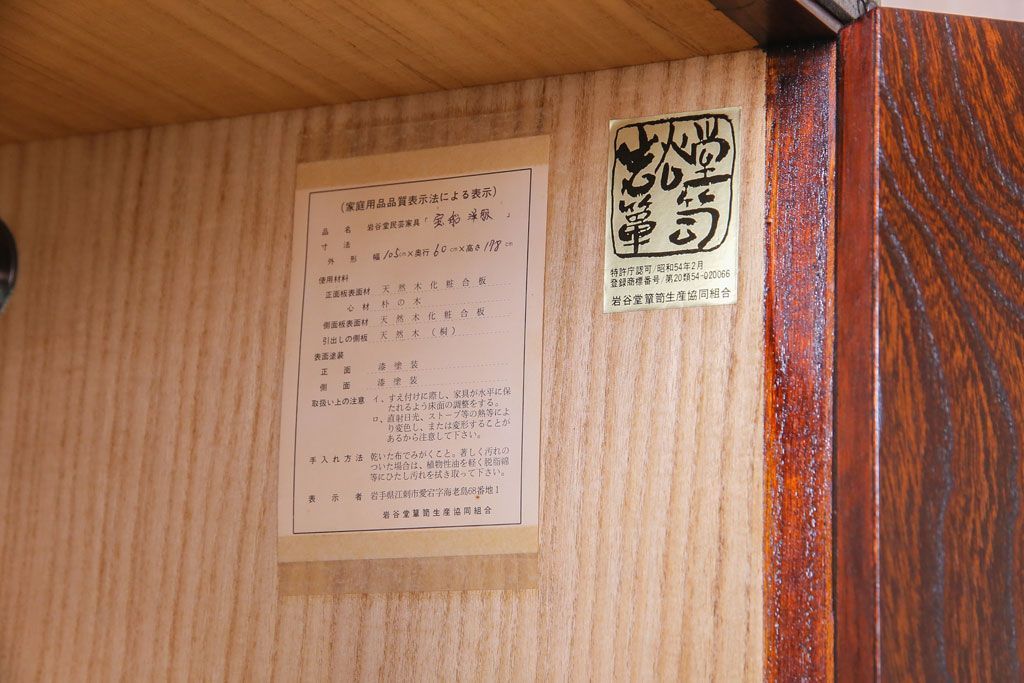 (家庭用品品質表示法による表示)
品名 岩谷堂民芸家具「宝船 洋服」
寸法
外形 幅105cm×奥行60cm×高さ198cm
使用材料
正面板表面材 天然木化粧合板
心材 朴の木
側面板表面材 天然木化粧合板
引出しの側板 天然木(桐)
表面塗装
正面 漆塗装
側面 漆塗装
取扱い上の注意 イ、すえ付けに際し、家具が水平に保
たれるよう床面の調整をする。
ロ、直射日光、ストーブ等の熱等によ
り変色し、または変形することが
あるから注意して下さい。
手入れ方法 乾いた布でみがくこと。著しく汚れの
ついた場合は、植物性油を軽く脱脂綿
等にひたし汚れを拭き取って下さい。
表示者 岩手県江刺市愛宕字海老島68番地1
岩谷堂簞笥生産協同組合
岩谷堂
簞笥
特許庁認可/昭和54年2月
登録商標番号/第20類54-020066
岩谷堂簞笥生産協同組合